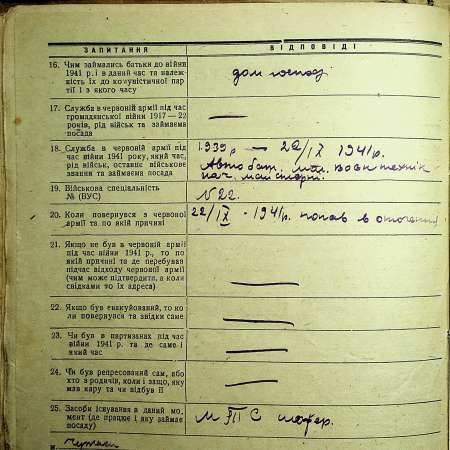 ЗАПИТАННЯ ВІДПОВІДІ
16. Чим займались батьки до війни
1941 р. і в даний час та належ-
ність їх до комуністичної пар-
тії і з якого часу
дом господ
17. Служба в червоній армії під час
громадянської війни 1917—22
років, рід військ та займаєма
посада
—
18. Служба в червоній армії під
час війни 1941 року, який час,
рід військ, останнє військове
звання та займаєма посада
1939 р — 22/IX 1941 р.
Авто бат. мол. воєн технік
нач. майстерні.
19. Військова спеціальність
№ (ВУС)
№ 22.
20. Коли повернувся з червоної
армії та по якій причині
22/IX - 1941 р. попав в оточення
21. Якщо не був в червоній армії
під час війни 1941 р., то по
якій причині та де перебував
під час відходу червоної армії
(чим може підтвердити, а коли
свідками то їх адреса)
—
22. Якщо був евакуйований, то ко-
ли повернувся та звідки саме
—
23. Чи був в партизанах під час
війни 1941 р. та де саме і
який час
—
24. Чи був репресований сам, або
хто з родичів, коли і защо, яку
мав кару та чи відбув її
—
25. Засоби існування в даний мо-
мент (де працює і яку займає
посаду)
шофер.
м.